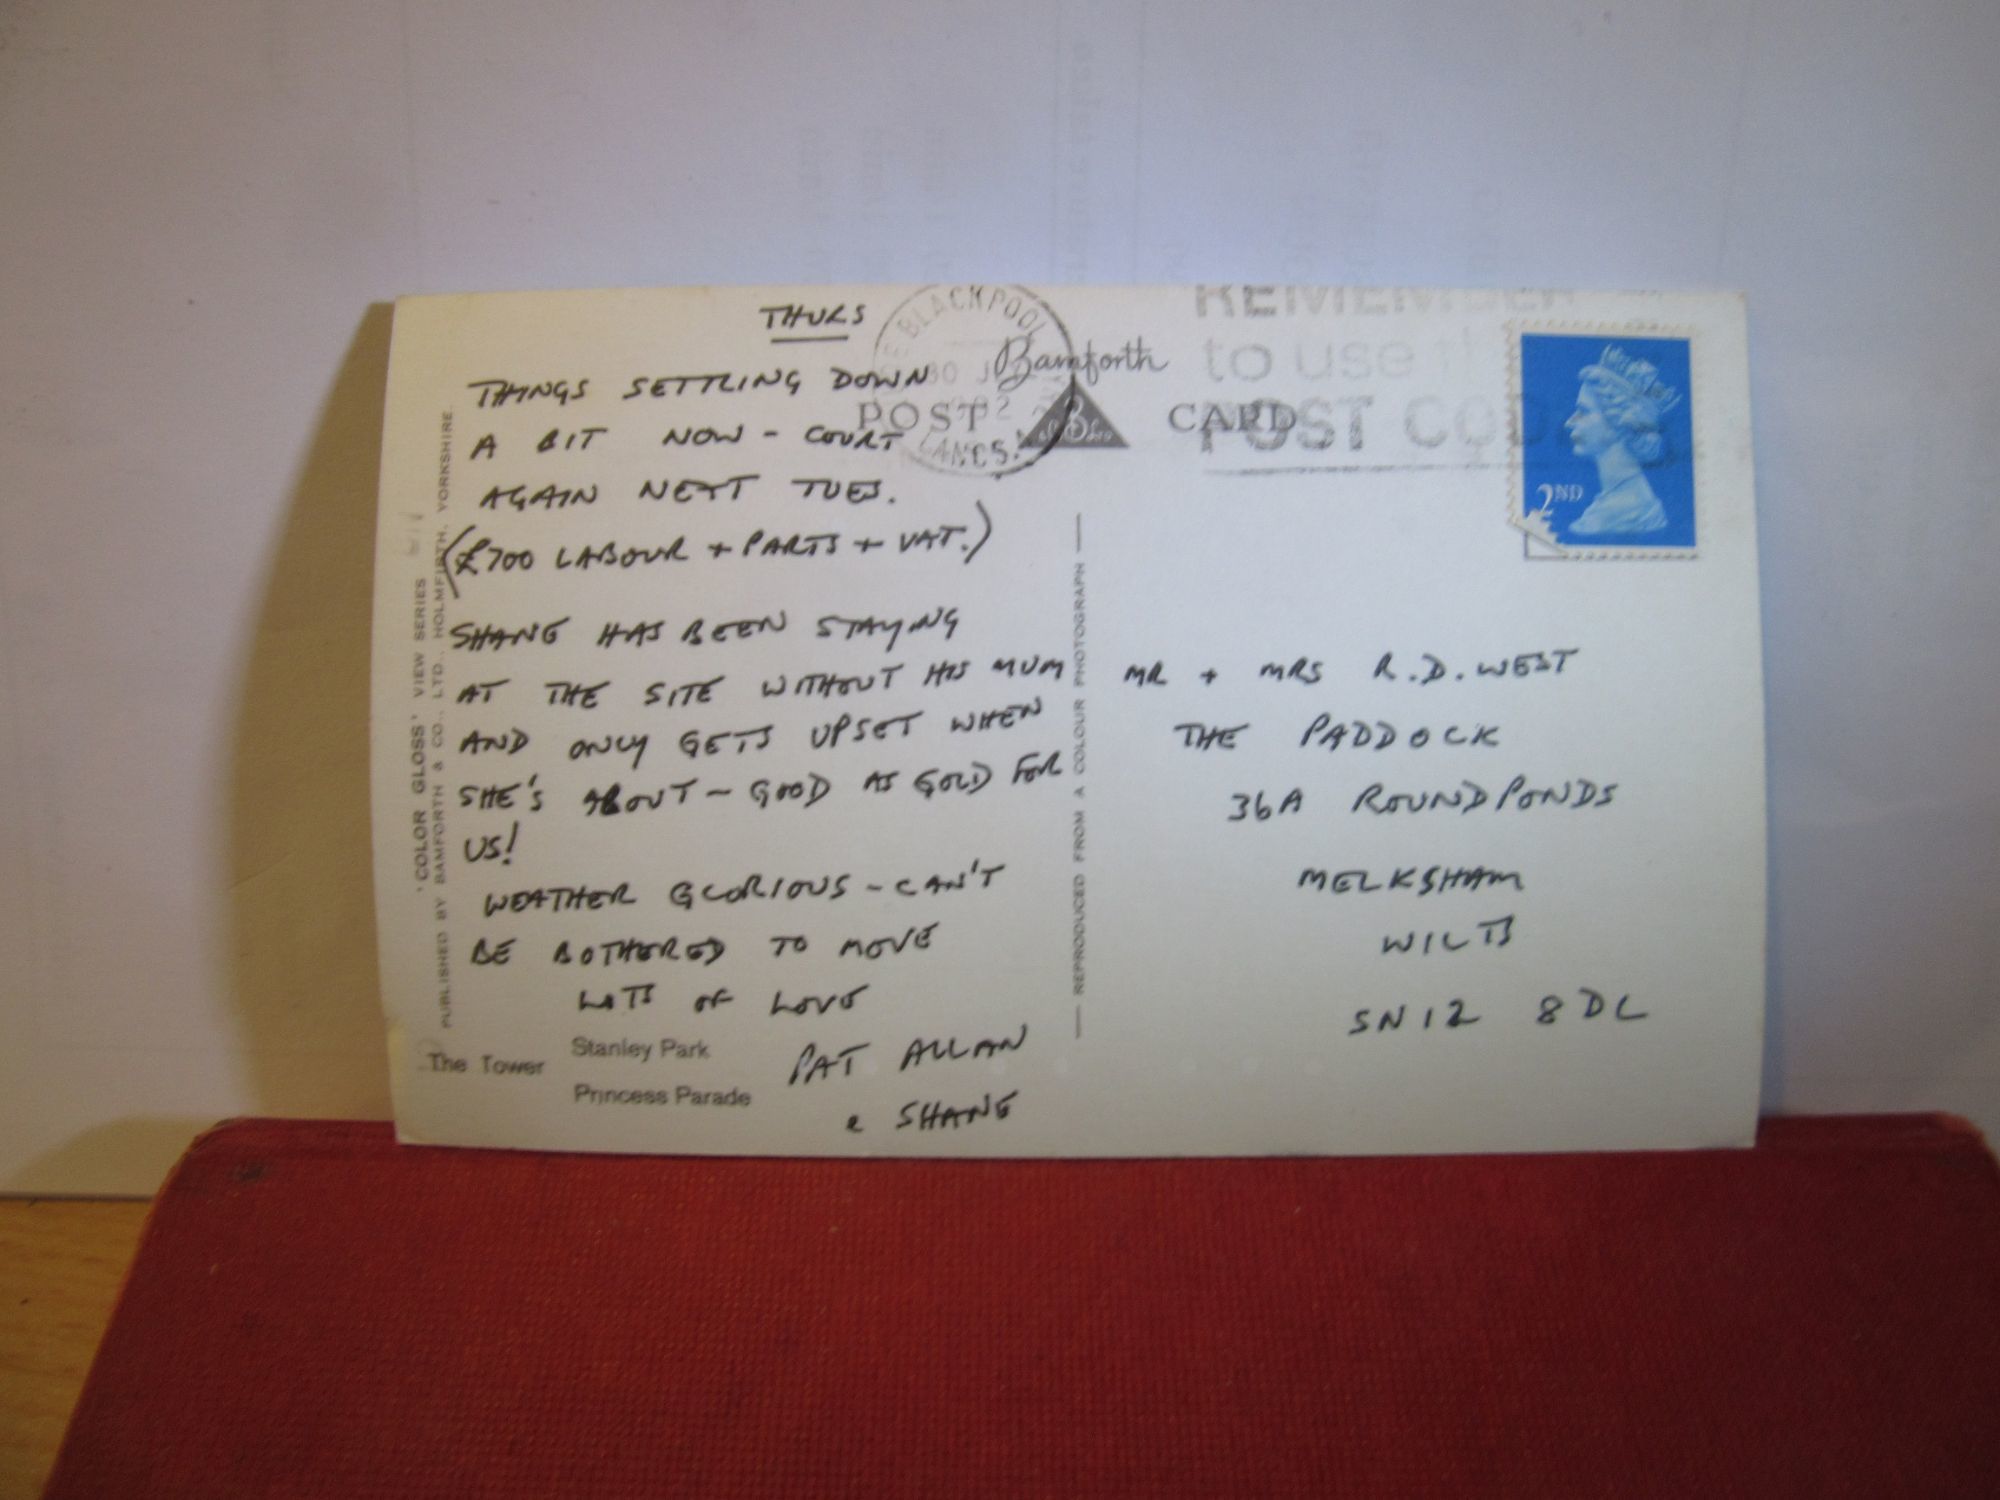 THURS
THINGS SETTLING DOWN
A BIT NOW - COURT
AGAIN NEXT TUES.
(£700 LABOUR + PARTS + VAT.)
SHANE HAS BEEN STAYING
AT THE SITE WITHOUT HIS MUM
AND ONLY GETS UPSET WHEN
SHE'S ABOUT - GOOD AS GOLD FOR
US!
WEATHER GLORIOUS - CAN'T
BE BOTHERED TO MOVE
LOTS OF LOVE
PAT ALLAN
& SHANE
The Tower
Stanley Park
Princess Parade
'COLOR GLOSS' VIEW SERIES
PUBLISHED BY BAMFORTH & CO., LTD., HOLMFIRTH, YORKSHIRE.
BLACKPOOL
30
LANCS.
Bamforth
POST CARD
REPRODUCED FROM A COLOUR PHOTOGRAPH
REMEMBER
to use
POST
2ND
MR + MRS R.D. WEST
THE PADDOCK
36A ROUNDPONDS
MELKSHAM
WILTS
SN12 8DL